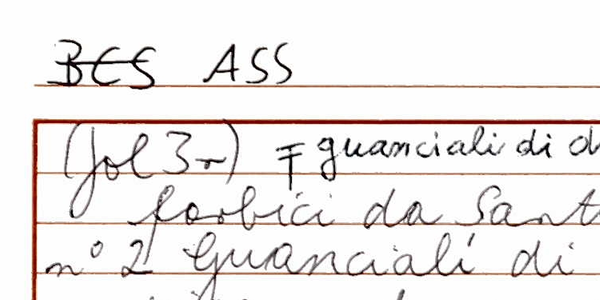 BCS ASS
(fol 3r) Ŧ guanciali di d
forbici da Sant
n° 2 Guanciali di